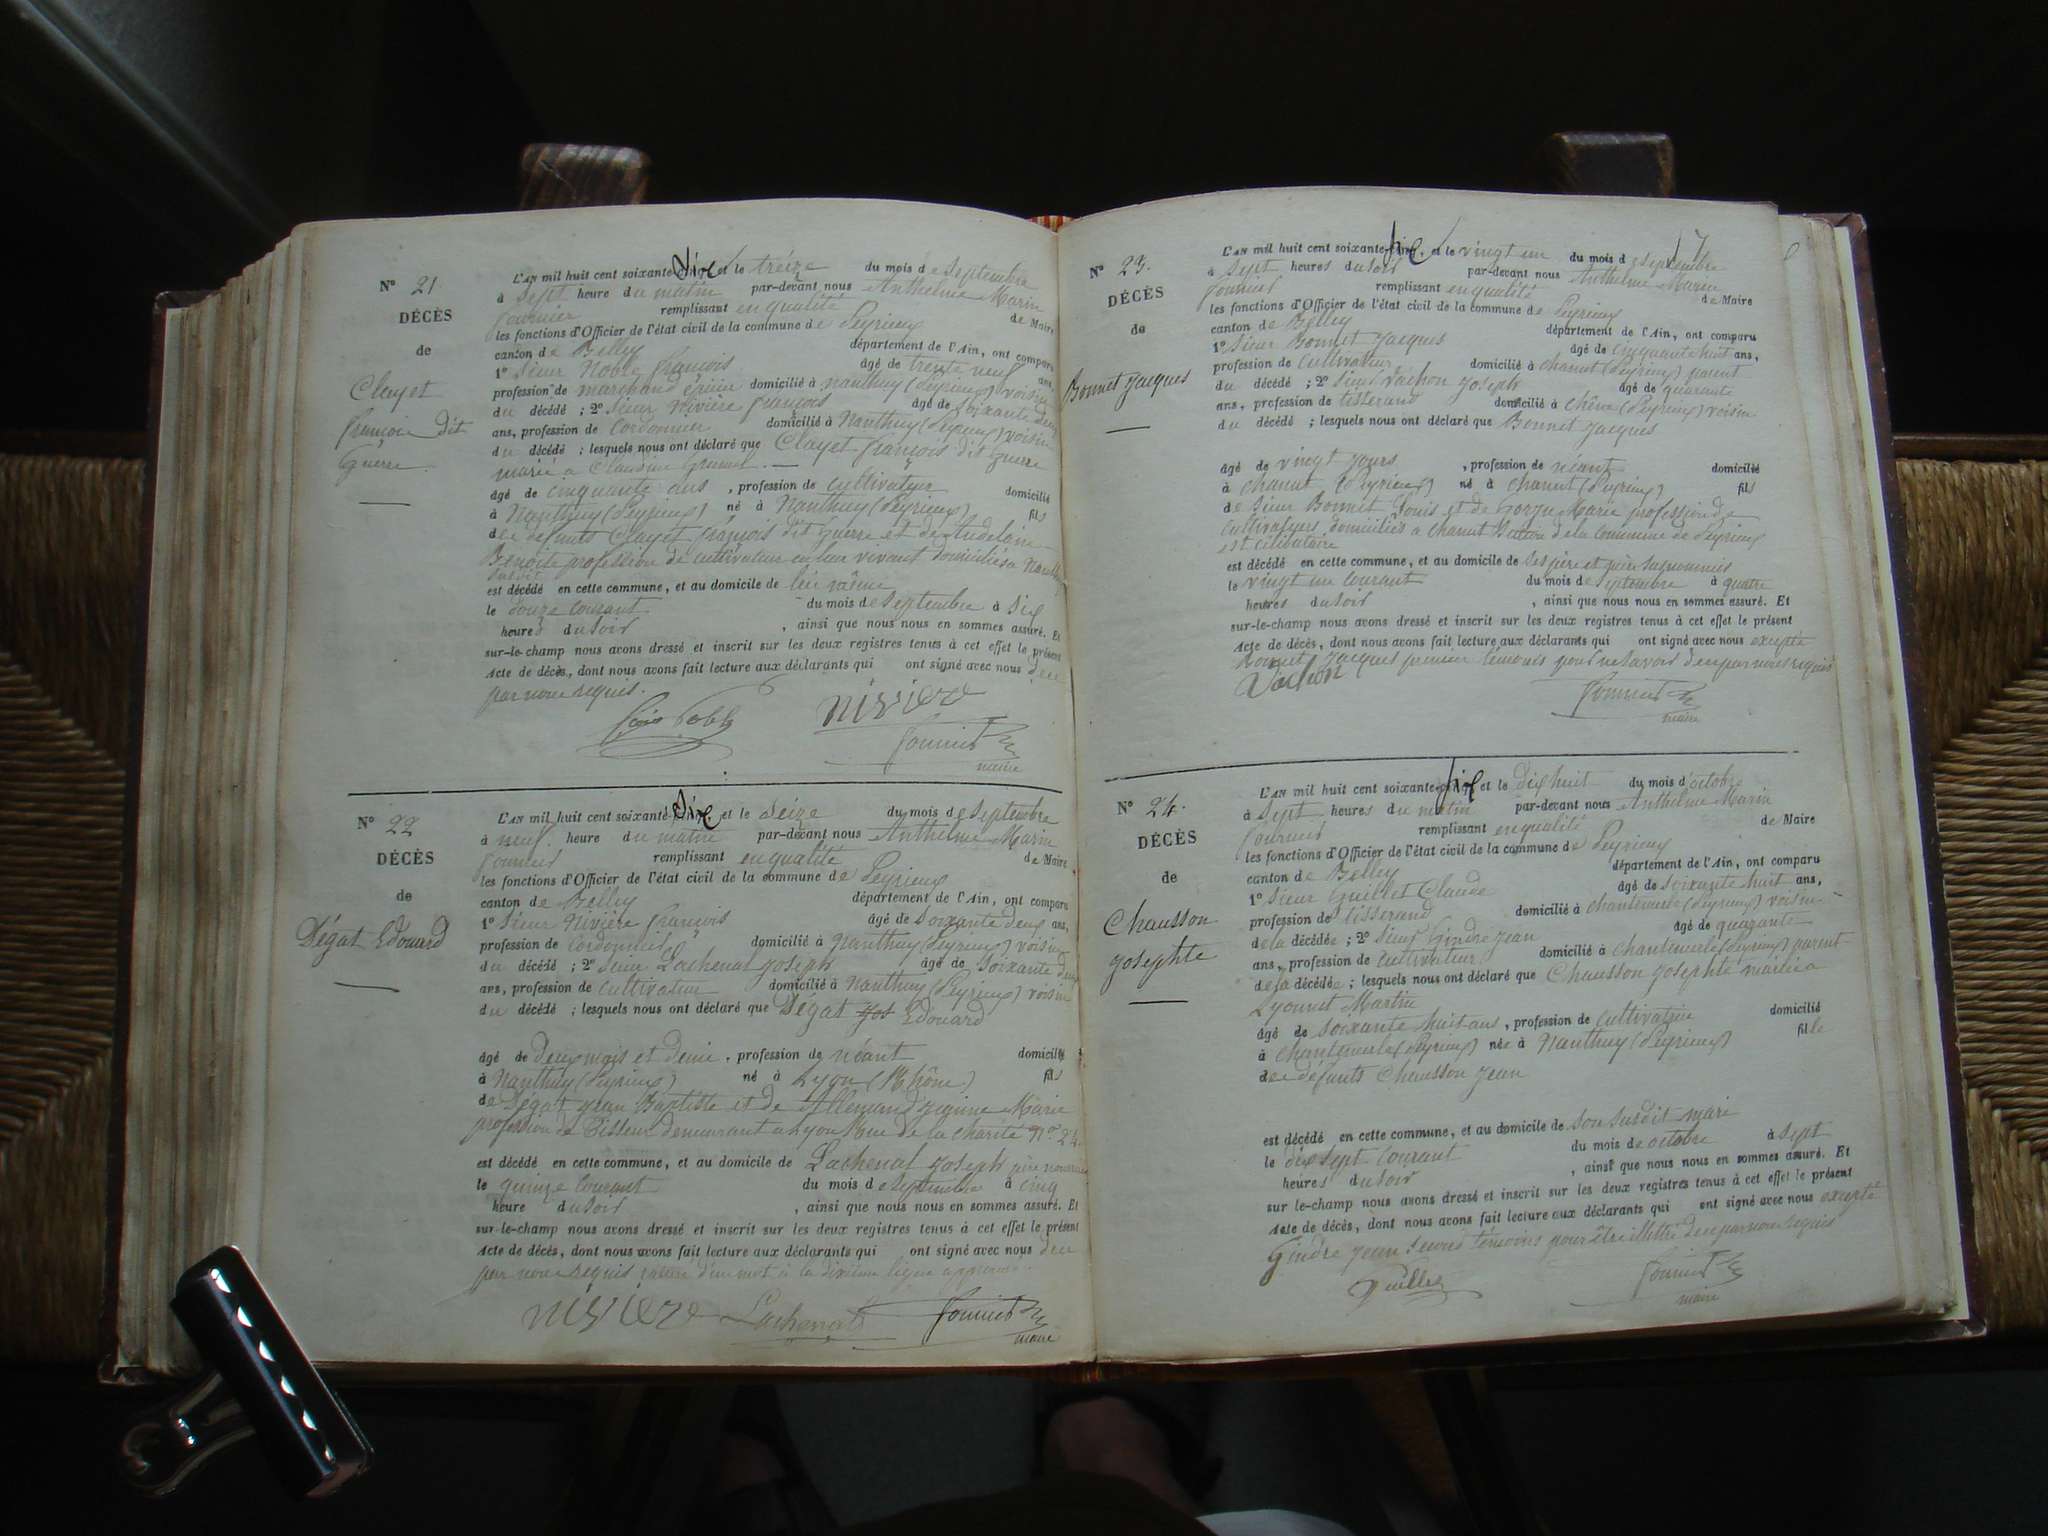 N° 21
DÉCÈS
de
Clayet
françois dit
Guerre
L'AN mil huit cent soixante six et le treize du mois de septembre
à sept heure du matin par-devant nous Anthelme Marin
fournier remplissant en qualité de Maire
les fonctions d'Officier de l'état civil de la commune de Peyrieux
canton de Belley département de l'Ain, ont comparu
1° Sieur Noble françois âgé de trente neuf ans,
profession de marchand épicier domicilié à Nanthuy (Peyrieux) voisin
du décédé ; 2° Sieur Rivière françois âgé de soixante deux
ans, profession de cordonnier domicilié à Nanthuy (Peyrieux) voisin
du décédé ; lesquels nous ont déclaré que Clayet françois dit Guerre
marié a Claudine
âgé de cinquante ans , profession de cultivateur domicilié
à Nanthuy (Peyrieux) né à Nanthuy (Peyrieux) fils
de défunts Clayet françois dit Guerre et de Andelain
Benoite profession de cultivateur en leur vivant domiciliés a
est décédé en cette commune, et au domicile de lui même
le douze courant du mois de septembre à six
heures du soir , ainsi que nous nous en sommes assuré. Et
sur-le-champ nous avons dressé et inscrit sur les deux registres tenus à cet effet le présent
Acte de décès, dont nous avons fait lecture aux déclarants qui ont signé avec nous de ce
par nous requis.
Noble Rivière
fournier
maire
N° 22
DÉCÈS
de
Dégat Edouard
L'AN mil huit cent soixante six et le seize du mois de septembre
à neuf heure du matin par-devant nous Anthelme Marin
fournier remplissant en qualité de Maire
les fonctions d'Officier de l'état civil de la commune de Peyrieux
canton de Belley département de l'Ain, ont comparu
1° Sieur Rivière françois âgé de soixante deux ans,
profession de cordonnier domicilié à Nanthuy (Peyrieux) voisin
du décédé ; 2° Sieur Lachenal Joseph âgé de soixante deux
ans, profession de cultivateur domicilié à Nanthuy (Peyrieux) voisin
du décédé ; lesquels nous ont déclaré que Dégat Jos Edouard
âgé de deux mois et demi , profession de néant domicilié
à Nanthuy (Peyrieux) né à Lyon (Rhône) fils
de Dégat Jean Baptiste et de Allemand Jeanne Marie
profession de Tisseur demeurant a Lyon Rue de la Charité N° 24
est décédé en cette commune, et au domicile de Lachenal Joseph père nourricier
le quinze courant du mois de septembre à cinq
heure du soir , ainsi que nous nous en sommes assuré. Et
sur-le-champ nous avons dressé et inscrit sur les deux registres tenus à cet effet le présent
Acte de décès, dont nous avons fait lecture aux déclarants qui ont signé avec nous de ce
par nous requis rature d'un mot à la dixième ligne approuvé.
Rivière Lachenal fournier
maire
N° 23.
DÉCÈS
de
Bonnet Jacques
L'AN mil huit cent soixante six et le vingt un du mois de septembre
à sept heures du soir par-devant nous Anthelme Marin
fournier remplissant en qualité de Maire
les fonctions d'Officier de l'état civil de la commune de Peyrieux
canton de Belley département de l'Ain, ont comparu
1° Sieur Bonnet Jacques âgé de cinquante huit ans,
profession de cultivateur domicilié à Chanut (Peyrieux) parent
du décédé ; 2° Sieur Vachon Joseph âgé de quarante
ans, profession de tisserand domicilié à Chêne (Peyrieux) voisin
du décédé ; lesquels nous ont déclaré que Bonnet Jacques
âgé de vingt jours , profession de néant domicilié
à Chanut (Peyrieux) né à Chanut (Peyrieux) fils
de Sieur Bonnet Louis et de Marie profession de
cultivateurs domiciliés a Chanut de la commune de Peyrieux
est célibataire
est décédé en cette commune, et au domicile de ses père et mère susnommés
le vingt un courant du mois de septembre à quatre
heures du soir , ainsi que nous nous en sommes assuré. Et
sur-le-champ nous avons dressé et inscrit sur les deux registres tenus à cet effet le présent
Acte de décès, dont nous avons fait lecture aux déclarants qui ont signé avec nous excepté
Bonnet Jacques premier témoins pour ne savoir de ce par nous requis
Vachon fournier
maire
N° 24.
DÉCÈS
de
Chausson
Josephte
L'AN mil huit cent soixante six et le dix huit du mois d'octobre
à sept heures du matin par-devant nous Anthelme Marin
fournier remplissant en qualité de Maire
les fonctions d'Officier de l'état civil de la commune de Peyrieux
canton de Belley département de l'Ain, ont comparu
1° Sieur Guillet Claude âgé de soixante huit ans,
profession de tisserand domicilié à Chantemerle (Peyrieux) voisin
de la décédée ; 2° Sieur Gindre Jean âgé de quarante
ans, profession de cultivateur domicilié à Chantemerle (Peyrieux) parent
de la décédée ; lesquels nous ont déclaré que Chausson Josephte mariée a
Lyonnet Martin
âgé de soixante huit ans , profession de cultivatrice domicilié
à Chantemerle (Peyrieux) née à Nanthuy (Peyrieux) fille
de défunts Chausson Jean
est décédé en cette commune, et au domicile de son susdit mari
le dix sept courant du mois de octobre à sept
heures du soir , ainsi que nous nous en sommes assuré. Et
sur-le-champ nous avons dressé et inscrit sur les deux registres tenus à cet effet le présent
Acte de décès, dont nous avons fait lecture aux déclarants qui ont signé avec nous excepté
Gindre Jean second témoins pour être illétré de ce par nous requis
Guillet fournier
maire